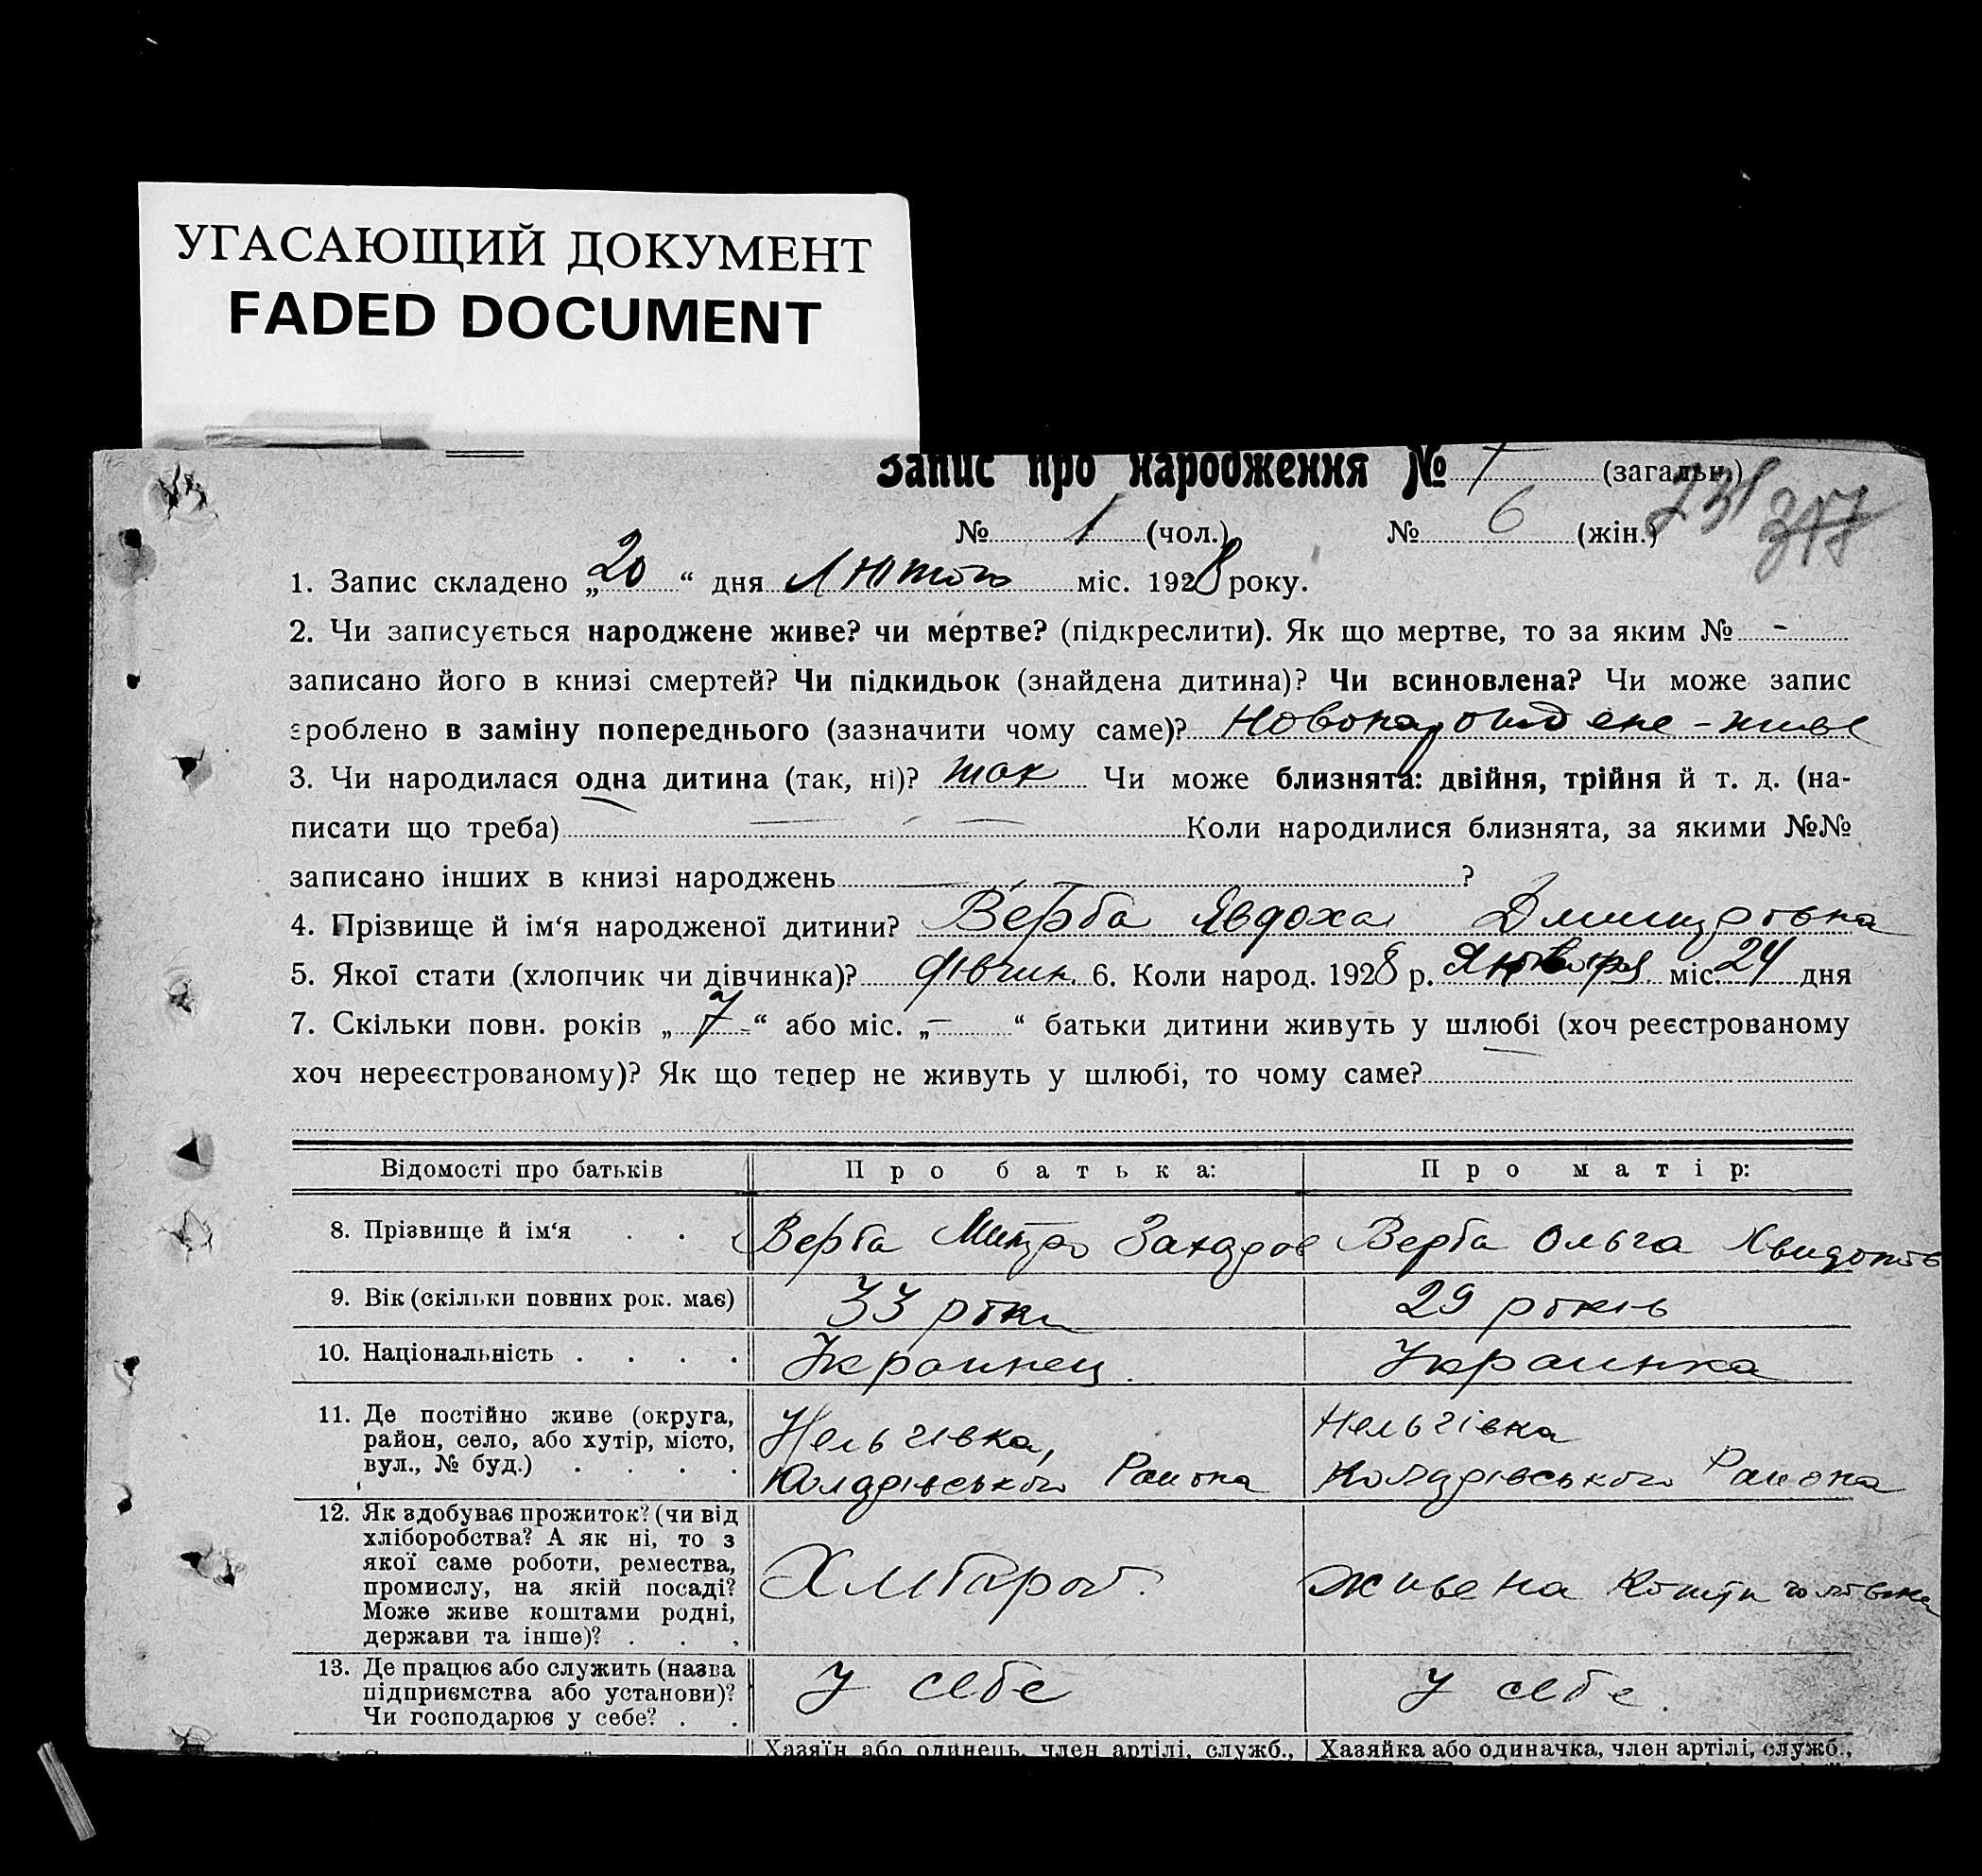 УГАСАЮЩИЙ ДОКУМЕНТ
FADED DOCUMENT
Запис про народження № 7 (загальн.)
№ 1 (чол.) № 6 (жін.)
1. Запис складено „20“ дня Лютого міс. 1928 року.
2. Чи записується народжене живе? чи мертве? (підкреслити). Як що мертве, то за яким № -
записано його в книзі смертей? Чи підкидьок (знайдена дитина)? Чи всиновлена? Чи може запис
зроблено в заміну попереднього (зазначити чому саме)? Новонарождене - живе
3. Чи народилася одна дитина (так, ні)? так Чи може близнята: двійня, трійня й т. д. (на-
писати що треба) Коли народилися близнята, за якими №№
записано інших в книзі народжень ?
4. Прізвище й ім‘я народженої дитини? Верба Явдоха Дмитровна
5. Якої стати (хлопчик чи дівчинка)? дівчин. 6. Коли народ. 1928 р. Января міс. 24 дня
7. Скільки повн. років „7“ або міс. „—“ батьки дитини живуть у шлюбі (хоч реєстрованому
хоч нереєстрованому)? Як що тепер не живуть у шлюбі, то чому саме?
Відомості про батьків Про батька: Про матір:
8. Прізвище й ім‘я . . Верба Митро Верба Ольга
9. Вік (скільки повних рок. має) 33 роки 29 років
10. Національність . . . . Украинец. Украинка
11. Де постійно живе (округа,
район, село, або хутір, місто,
вул., № буд.) . . . .
Нельгівка, Района
Нельгівка Района
12. Як здобуває прожиток? (чи від
хліборобства? А як ні, то з
якої саме роботи, ремества,
промислу, на якій посаді?
Може живе коштами родні,
держави та інше)? . . .
Хлібороб.
Живе на кошти чоловіка
13. Де працює або служить (назва
підприємства або установи)?
Чи господарює у себе? . .
У себе
У себе.
Хазяїн або одинець, член артілі, служб.,
Хазяйка або одиначка, член артілі, служб.,